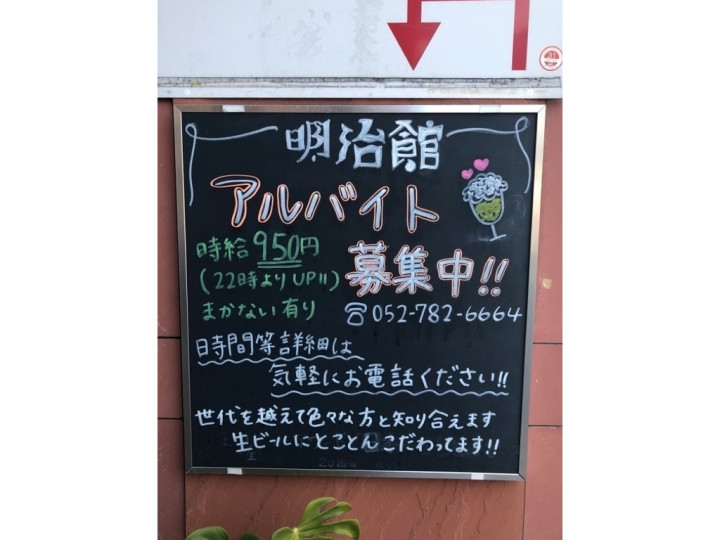 明治館
アルバイト
募集中!!
時給950円
(22時よりUP!!)
まかない有り
☎052-782-6664
日時間等詳細は
気軽にお電話ください!!
世代を越えて色々な方と知り合えます
生ビールにとことんこだわってます!!